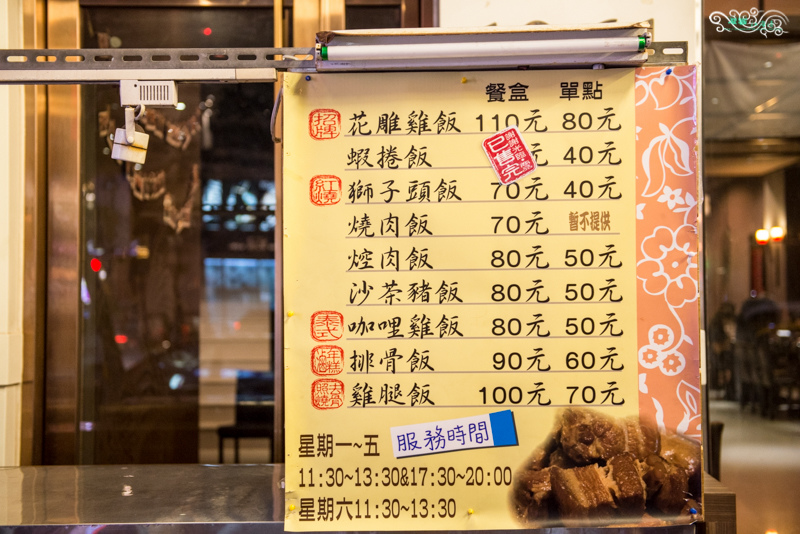 餐盒 單點
招牌 花雕雞飯 110元 80元
蝦捲飯 元 40元
謝謝光臨
已售完
紅燒 獅子頭飯 70元 40元
燒肉飯 70元 暫不提供
焢肉飯 80元 50元
沙茶豬飯 80元 50元
義式 咖哩雞飯 80元 50元
排骨飯 90元 60元
雞腿飯 100元 70元
星期一~五 服務時間
11:30~13:30&17:30~20:00
星期六11:30~13:30